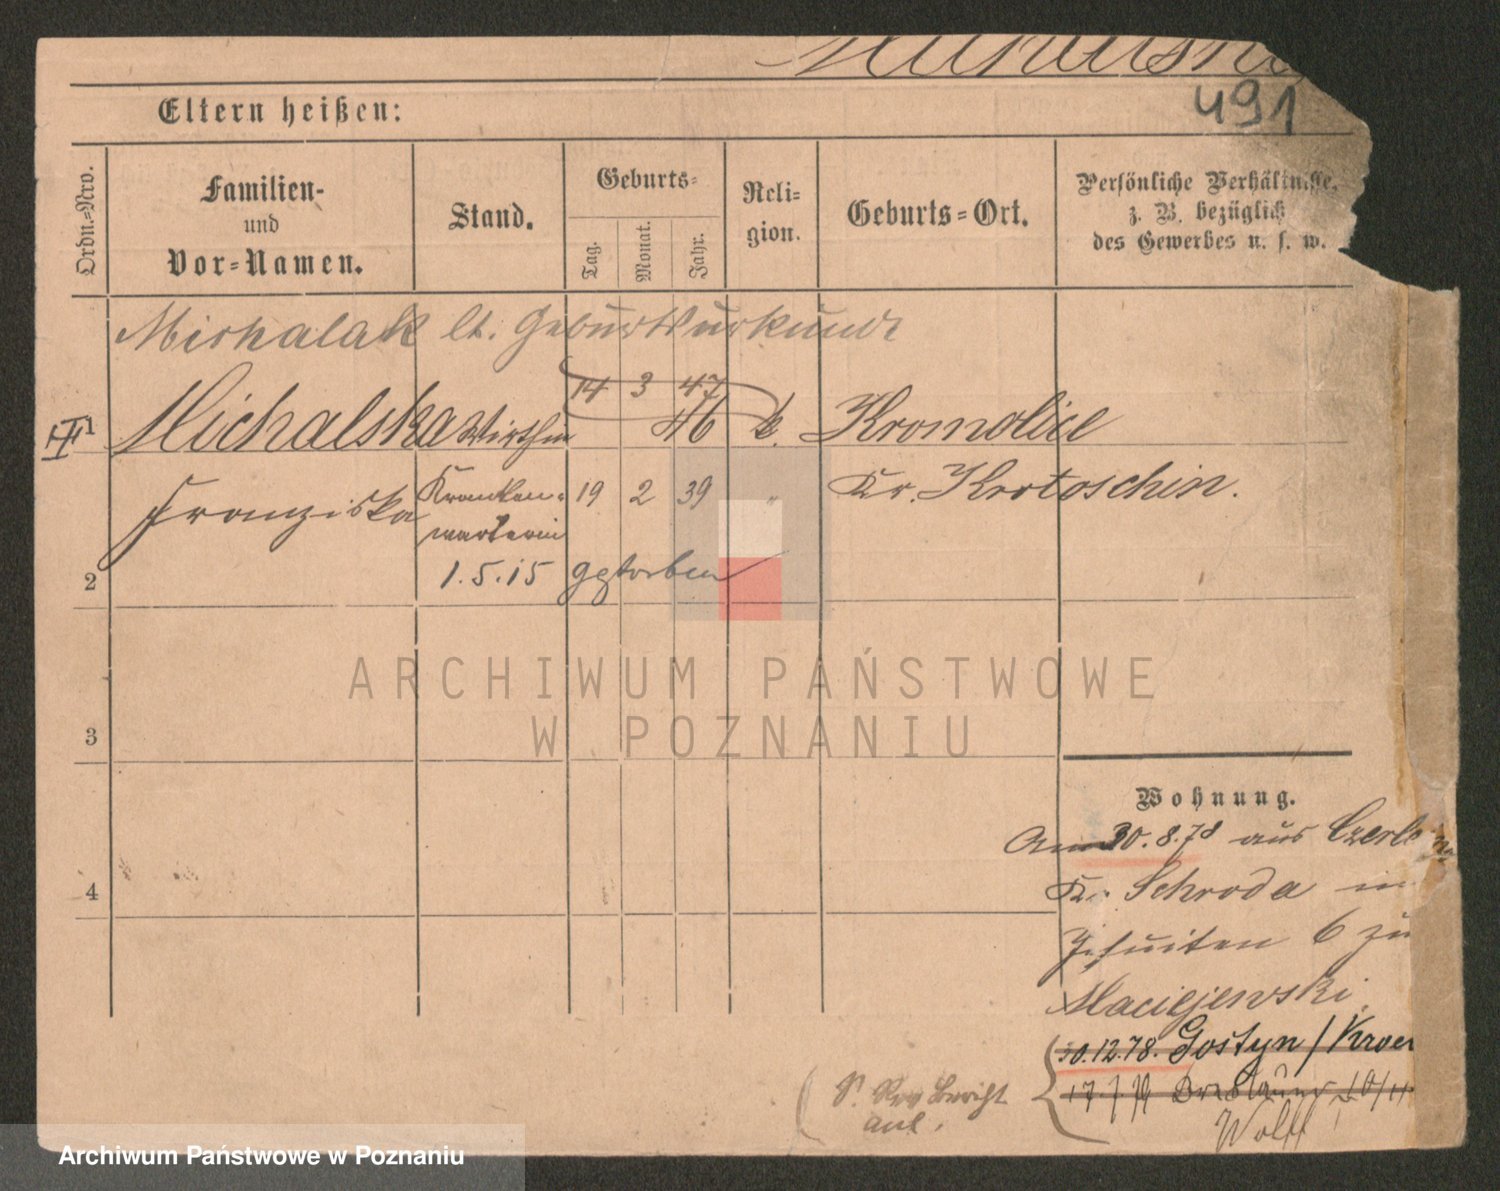 Michalska
491
Eltern heißen:
Ordn.=Nro.
Familien-
und
Vor=Namen.
Stand.
Geburts=
Tag.
Monat.
Jahr.
Reli-
gion.
Geburts=Ort.
Persönliche Verhältnisse,
z. B. bezüglich
des Gewerbes u. s. w.
Michalak lt. Geburtsurkunde
14 3 47
1 Michalska Wirthin 46 k. Kromolice
Franziska Kranken- 19 2 39 " Kr. Krotoschin.
wärterin
2 1.5.15 gestorben
3
4
Wohnung.
Am 30.8.78 aus Czerl
Kr. Schroda in
Jesuiten 6 zu
Maciejewski
30.12.78. Gostyn/Kroe
17. Breslauer 10/11
Wolff
Bericht
ARCHIWUM PAŃSTWOWE
W POZNANIU
Archiwum Państwowe w Poznaniu